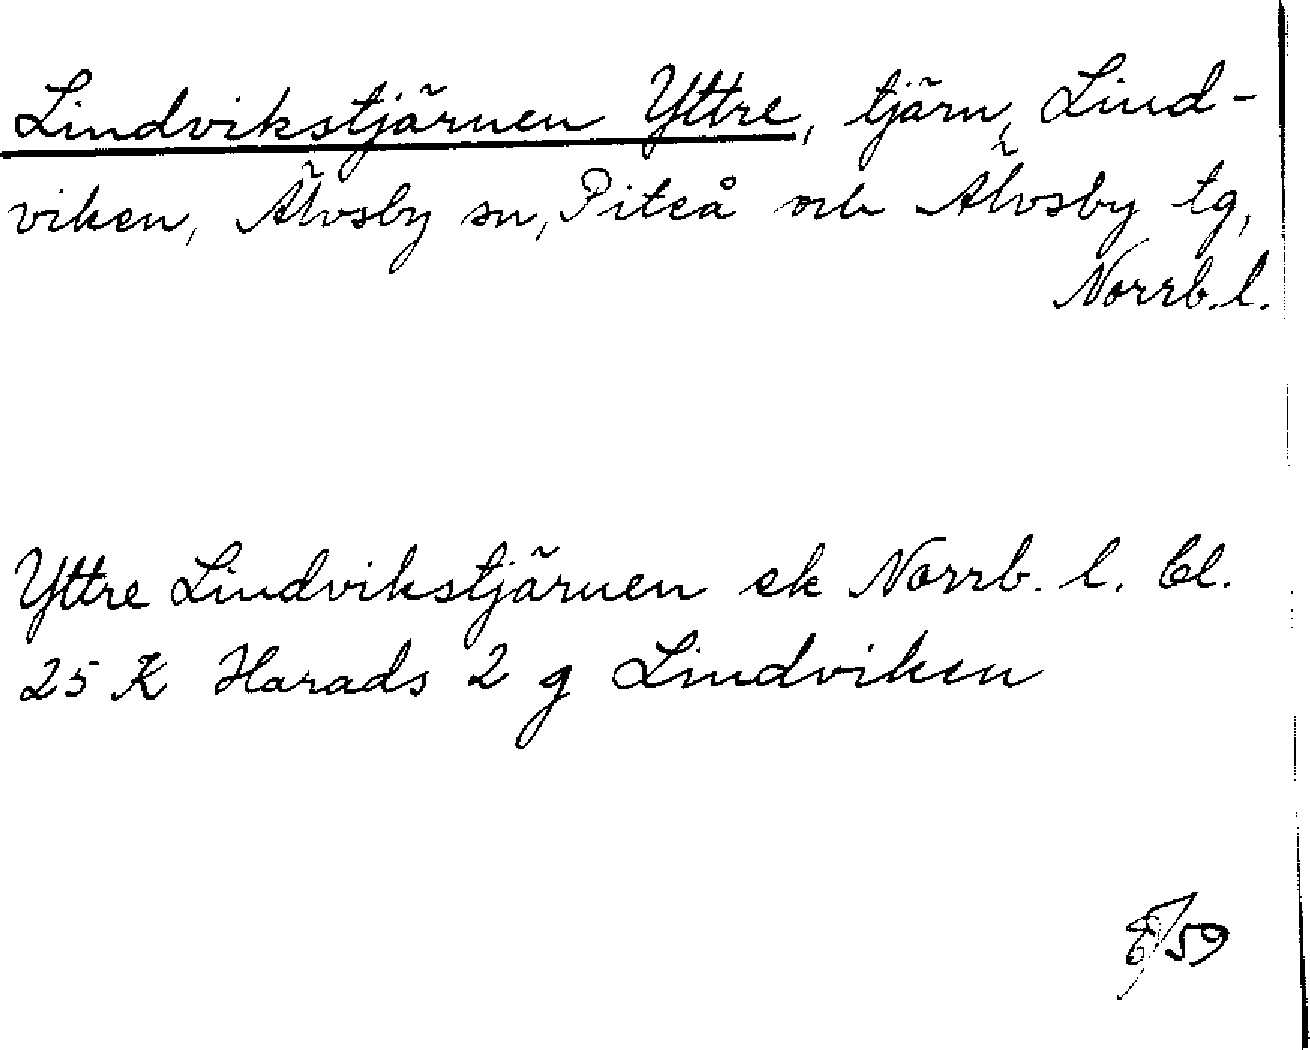 Lindvikstjärnen Yttre, tjärn, Lind-
viken, Älvsby sn, Piteå och Älvsby tg,
Norrb. l.
Yttre Lindvikstjärnen ek Norrb. l. bl.
25 K Harads 2 g Lindviken
59